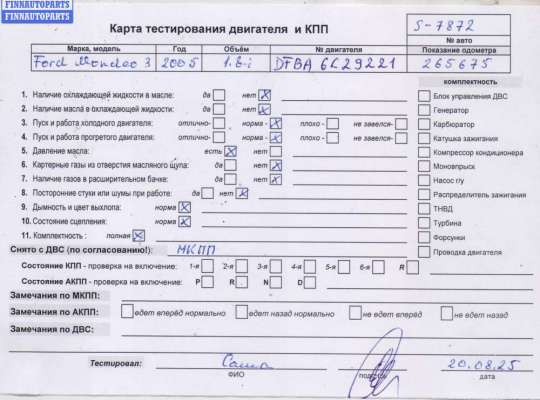 FINNAUTOPARTS
FINNAUTOPARTS
Карта тестирования двигателя и КПП
S-7872
№ авто
Марка, модель Год Объём № двигателя Показание одометра
Ford Mondeo 3 2005 1.8i 6C29221 265675
комплектность
1. Наличие охлаждающей жидкости в масле: да нет x
2. Наличие масла в охлаждающей жидкости: да нет x
3. Пуск и работа холодного двигателя: отлично- норма - x плохо - не завелся-
4. Пуск и работа прогретого двигателя: отлично- норма - x плохо - не завелся-
5. Давление масла: есть x нет
6. Картерные газы из отверстия масляного щупа: да нет x
7. Наличие газов в расширительном бачке: да нет x
8. Посторонние стуки или шумы при работе: да нет x
9. Дымность и цвет выхлопа: норма x
10. Состояние сцепления: норма x
11. Комплектность : полная x
Блок управления ДВС
Генератор
Карбюратор
Катушка зажигания
Компрессор кондиционера
Моновпрыск
Насос г/у
Распределитель зажигания
ТНВД
Турбина
Форсунки
Проводка двигателя
Снято с ДВС (по согласованию!): МКПП
Состояние КПП - проверка на включение: 1-я 2-я 3-я 4-я 5-я 6-я R
Состояние АКПП - проверка на включение: P R N D
Замечания по МКПП:
Замечания по АКПП: едет вперёд нормально едет назад нормально не едет вперед не едет назад
Замечания по ДВС:
Тестировал: Саша 20.08.25
ФИО подпись дата